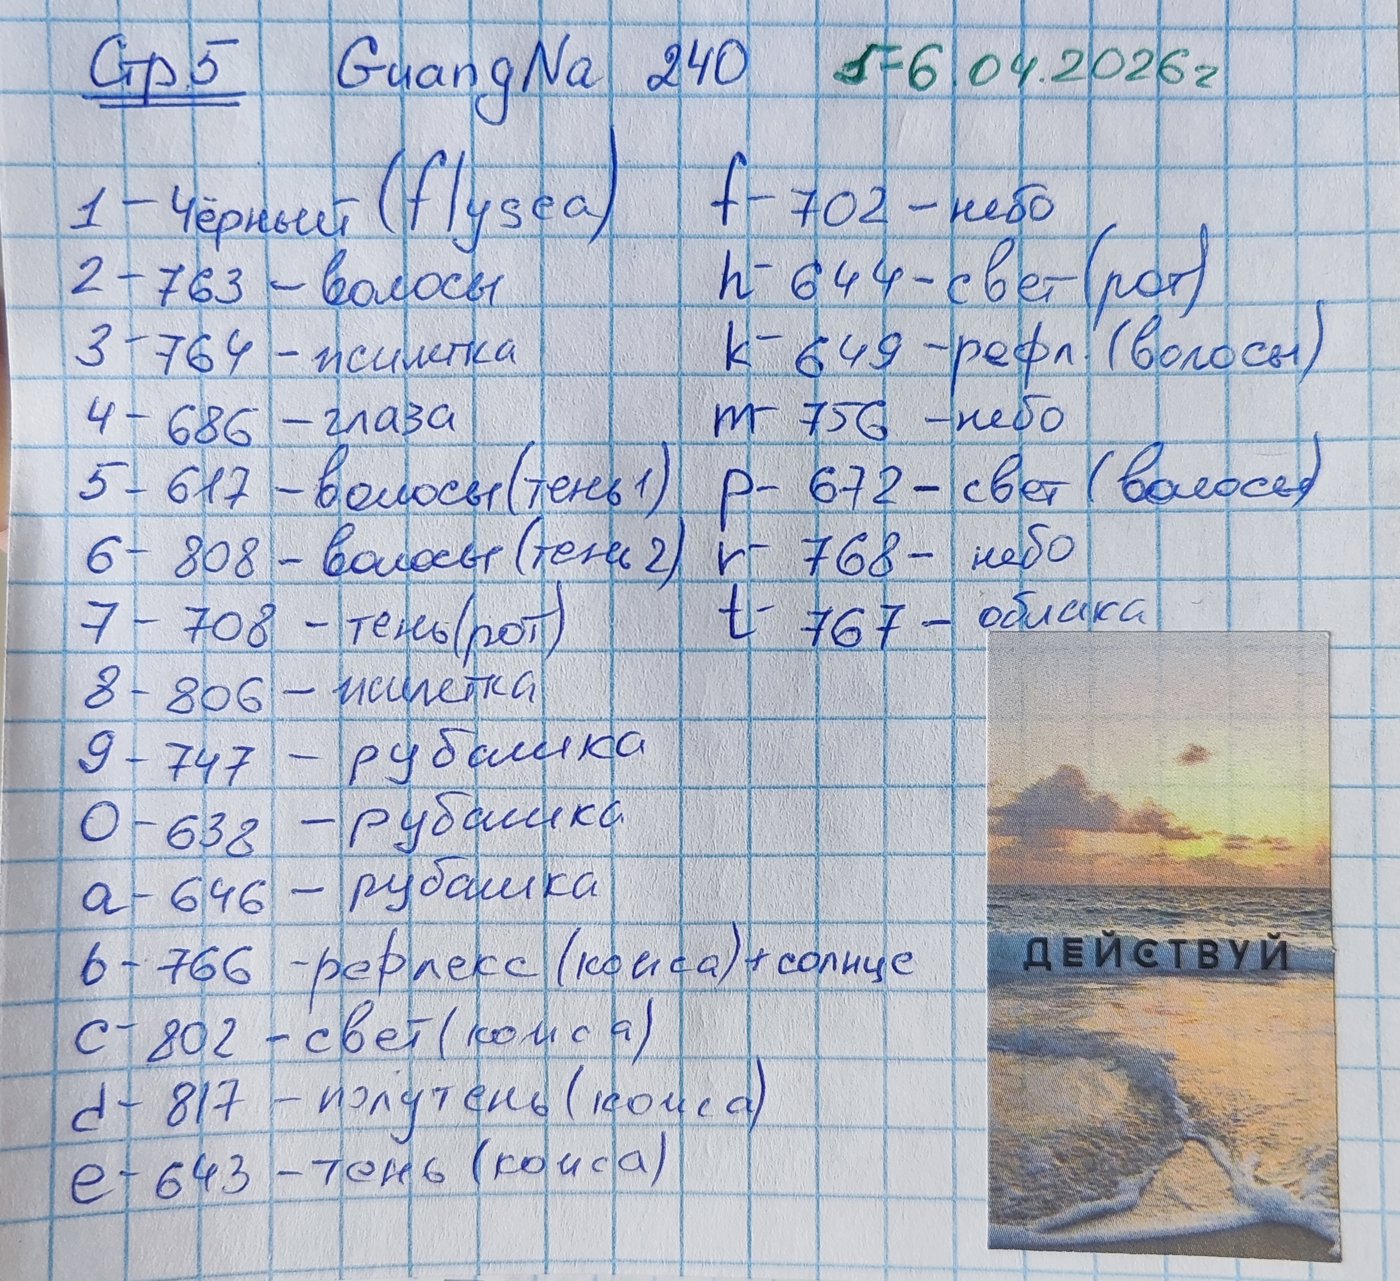 Стр.5 GuangNa 240 5-6.04.2026г
1 - Чёрный (flysea)
2 - 763 - волосы
3 - 764 - жилетка
4 - 686 - глаза
5 - 617 - волосы (тень 1)
6 - 808 - волосы (тень 2)
7 - 708 - тень (рот)
8 - 806 - жилетка
9 - 747 - рубашка
0 - 638 - рубашка
a - 646 - рубашка
b - 766 - рефлекс (кожа) + солнце
c - 802 - свет (кожа)
d - 817 - полутень (кожа)
e - 643 - тень (кожа)
f - 702 - небо
h - 644 - свет (рот)
k - 649 - рефл. (волосы)
m - 756 - небо
p - 672 - свет (волосы)
r - 768 - небо
t - 767 - облака
ДЕЙСТВУЙ